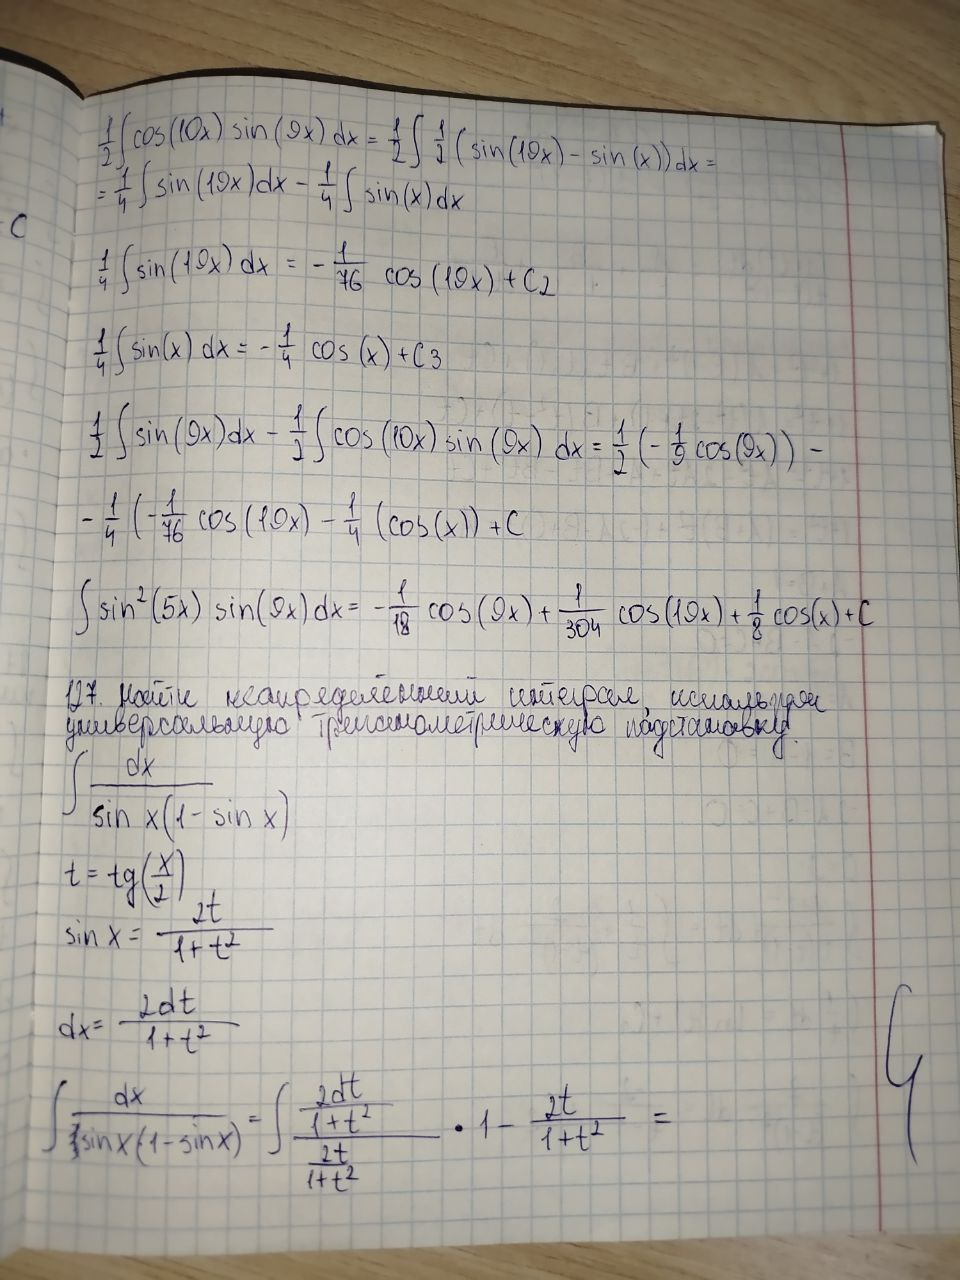 1/2 ∫ cos(10x) sin(9x) dx = 1/2 ∫ 1/2 (sin(19x) - sin(x)) dx =
= 1/4 ∫ sin(19x) dx - 1/4 ∫ sin(x) dx
C
1/4 ∫ sin(19x) dx = - 1/76 cos(19x) + C2
1/4 ∫ sin(x) dx = - 1/4 cos(x) + C3
1/2 ∫ sin(9x) dx - 1/2 ∫ cos(10x) sin(9x) dx = 1/2 (- 1/9 cos(9x)) -
- 1/4 (- 1/76 cos(19x) - 1/4 (cos(x)) + C
∫ sin²(5x) sin(9x) dx = - 1/18 cos(9x) + 1/304 cos(19x) + 1/8 cos(x) + C
127. Найти неопределённый интеграл, используя
универсальную тригонометрическую подстановку.
∫ dx / sin x(1 - sin x)
t = tg(x/2)
sin x = 2t / 1+t²
dx = 2dt / 1+t²
∫ dx / sin x(1 - sin x) = ∫ (2dt / 1+t²) / (2t / 1+t²) • 1 - 2t / 1+t² =